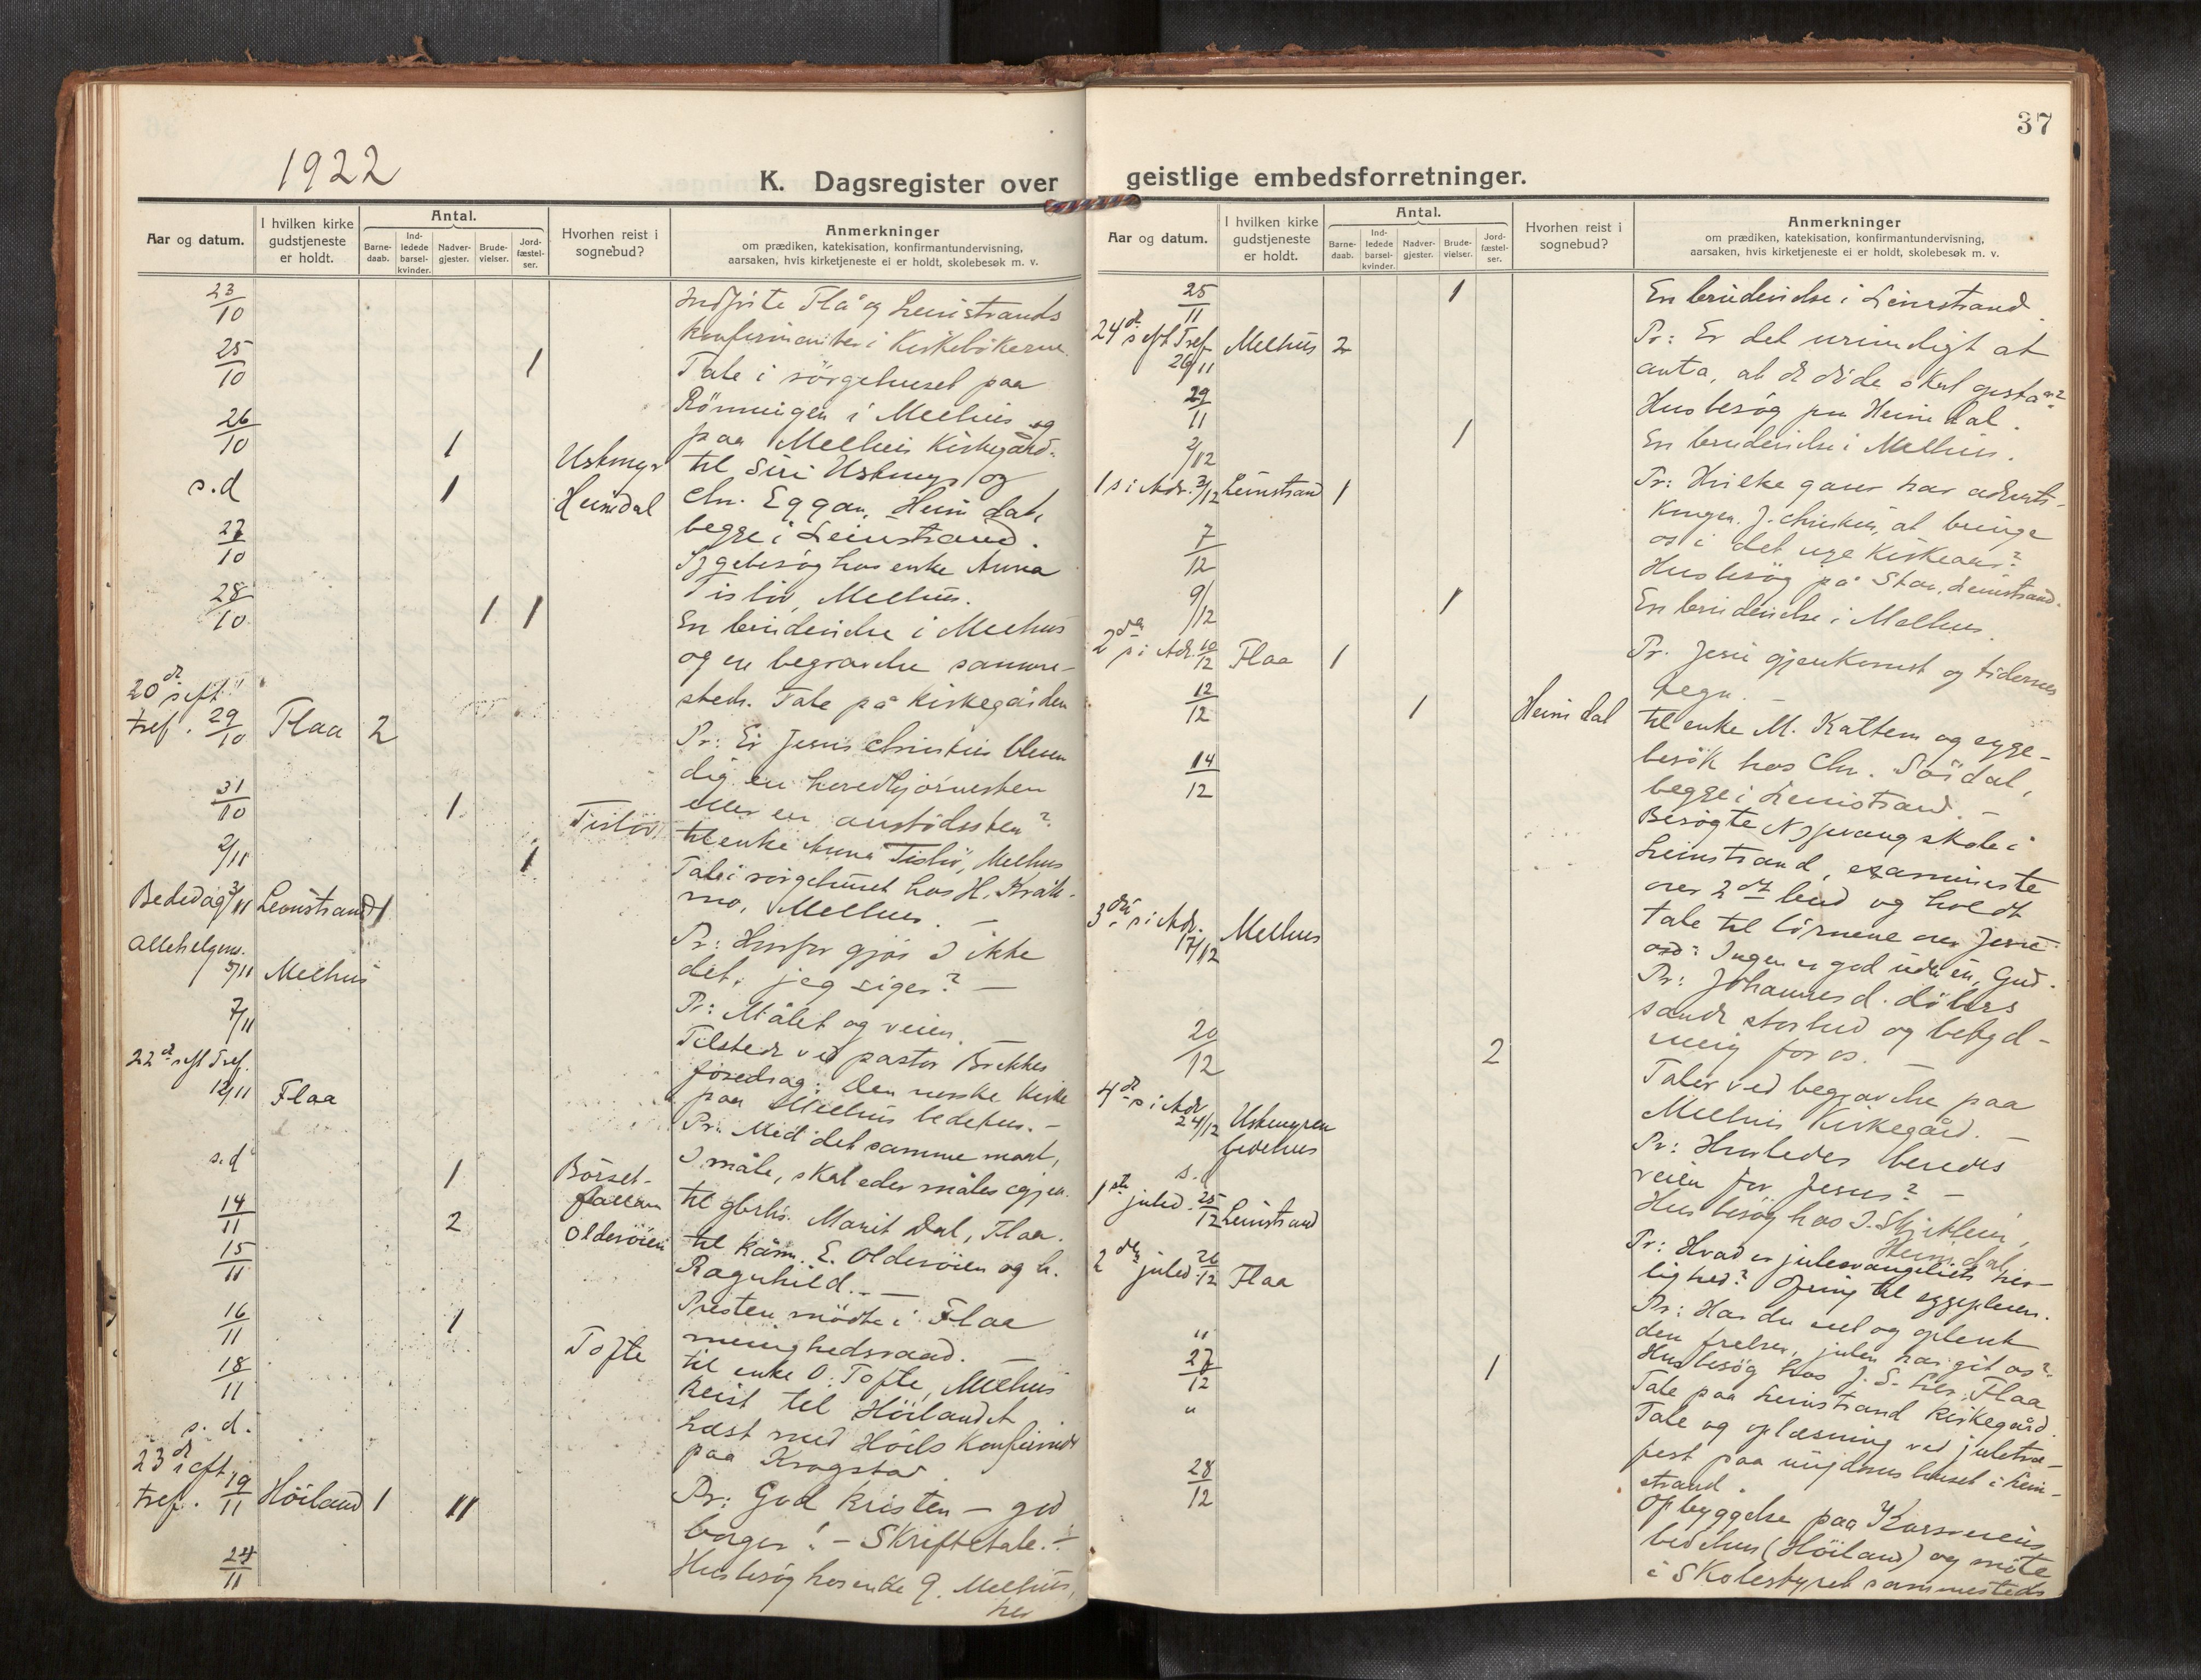 1922
K. Dagsregister over
Aar og datum.
I hvilken kirke gudstjeneste er holdt.
Antal.
Barne-daab.
Ind-ledede barsel-kvinder.
Nadver-gjester.
Brude-vielser.
Jord-fæstel-ser.
Hvorhen reist i sognebud?
Anmerkninger
om prædiken, katekisation, konfirmantundervisning,
aarsaken, hvis kirketjeneste ei er holdt, skolebesøk m. v.
23/10 Indførte Flå og Leinstrands
konfirmanter i Kirkebökerne.
25/10 1 Tale i sörgehuset paa
Rönningen i Melhus og
paa Melhus Kirkegård.
26/10 1 Ustmyr til Siri Ustmyr og
s.d 1 Heimdal Chr. Eggan, Heimdal,
begge i Leinstrand.
27/10 Sygebesög hos enke Anna
Tislöv, Melhus.
28/10 1 1 En brudevielse i Melhus
og en begravelse samme-
steds. Tale på kirkegården
20de s. eft.
tref. 29/10 Flaa 2 Pr: Er Jesus Christus bleven
dig en hovedhjörnesten
eller en anstödssten?
31/10 1 Tislöv til enke Anna Tislöv, Melhus
2/11 1 Tale i sörgehuset hos H. Kråk-
mo, Melhus. —
Bededag 3/11 Leinstrand 1 Pr: Hvorfor gjör I ikke
det, jeg siger? —
Allehelgens.
5/11 Melhus Pr: Målet og veien.
7/11 Tilstede ved pastor Brekkes
foredrag: Den norske Kirke
paa Melhus bedehus. —
22de s eft Tref.
12/11 Flaa Pr: Med det samme maal,
I måle, skal eder måles igjen.
s.d 1 Börset-
flaan til Marit Dal, Flaa.
14/11 2 Olderöien til kårm. E. Olderöien og h.
Ragnhild. —
15/11 Presten mödte i Flaa
menighedsraad. —
16/11 1 Tofte til enke O. Tofte, Melhus
18/11 Reist til Höilandet
s. d. Læst med Höils Konfirmder
paa Krogstad.
23de s eft
tref. 19/11 Höiland 1 11 Pr: God kristen — god
borger! — Skriftetale. —
24/11 Husbesög hos enke G. Melhus,
her
37
geistlige embedsforretninger.
Aar og datum.
I hvilken kirke gudstjeneste er holdt.
Antal.
Barne-daab.
Ind-ledede barsel-kvinder.
Nadver-gjester.
Brude-vielser.
Jord-fæstel-ser.
Hvorhen reist i sognebud?
Anmerkninger
om prædiken, katekisation, konfirmantundervisning,
aarsaken, hvis kirketjeneste ei er holdt, skolebesøk m. v.
25/11 1 En brudevielse i Leinstrand.
24de s eft Tref
26/11 Melhus 2 Pr: Er det urimeligt at
anta, at de döde skal opstaa?
29/11 Husbesög paa Heimdal.
2/12 1 En brudevielse i Melhus.
1 s i Adv. 3/12 Leinstrand 1 Pr: Hvilke gaver har advents-
Kongen, J. Christus, at bringe
os i det nye Kirkeaar?
7/12 Husbesög på Stor. Leinstrand.
9/12 1 En brudevielse i Melhus.
2den s i Adv. 10/12 Flaa 1 Pr. Jesu gjenkomst og tidernes
tegn. —
12/12 1 Heimdal til enke M. Kattem og syge-
besök hos Chr. Sördal,
begge i Leinstrand. —
14/12 Besögte Nypvang skole i
Leinstrand, examinerte
over 2det bud og holdt
tale til börnene over Jesu
ord: Ingen er god uden én, Gud.
3die s i Adv.
17/12 Melhus Pr: Johannes d. döbers
sande storhed og betyd-
ning for os. —
20/12 2 Taler ved begravelse paa
Melhus Kirkegård. —
4de s i Adv
24/12 Ustmyren
bedehus Pr: Hvorledes beredes
veien for Jesus? —
s. d Husbesög hos I. Skjetlein,
Heimdal
1ste juled. 25/12 Leinstrand Pr: Hvad er juleevangeliets her-
lighed? Ofring til sygepleien.
2den juled. 26/12 Flaa Pr: Har du set og oplevet
den frelser, julen har git os?
" Husbesög hos J. S. Ler, Flaa
27/12 1 Tale paa Leinstrand Kirkegård.
" Tale og oplæsning ved juletræ-
fest paa ungdomshuset i Lein-
strand.
28/12 Opbyggelse paa
bedehus (Höiland) og möte
i Skolestyret sammesteds